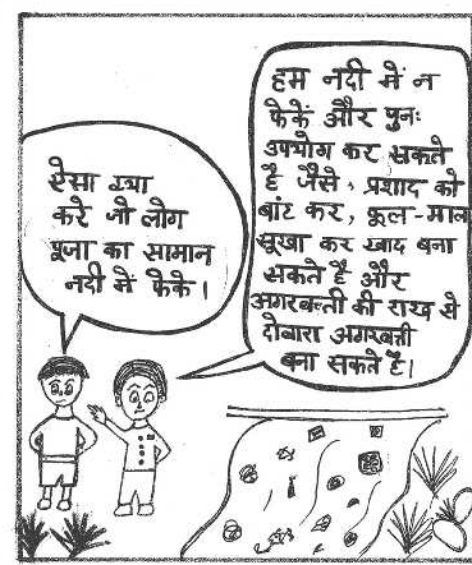 ऐसा क्या
करे जो लोग
पूजा का सामान
नदी में फेके।
हम नदी में न
फेकें और पुनः
उपयोग कर सकते
है जैसे, प्रशाद को
बांट कर, फूल-माला
सूखा कर खाद बना
सकते है और
अगरबत्ती की राख से
दोबारा अगरबत्ती
बना सकते है।